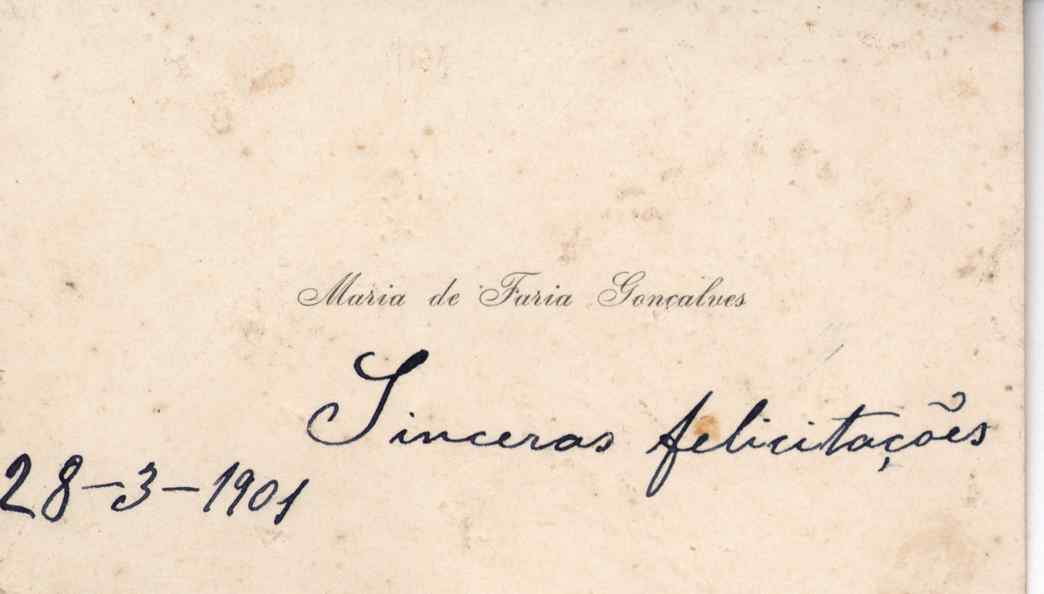 Maria de Faria Gonçalves
Sinceras felicitações
28-3-1901